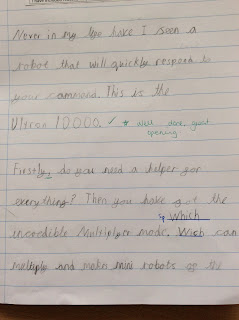 Never in my life have I seen a
robot that will quickly respond to
your command. This is the
Ultron 10000. ✓ * Well done, great
opening
Firstly, do you need a helper for
everything? Then you have got the
sp Which
incredible Multiplyer mode. Wich can
multiply and make mini robots of the